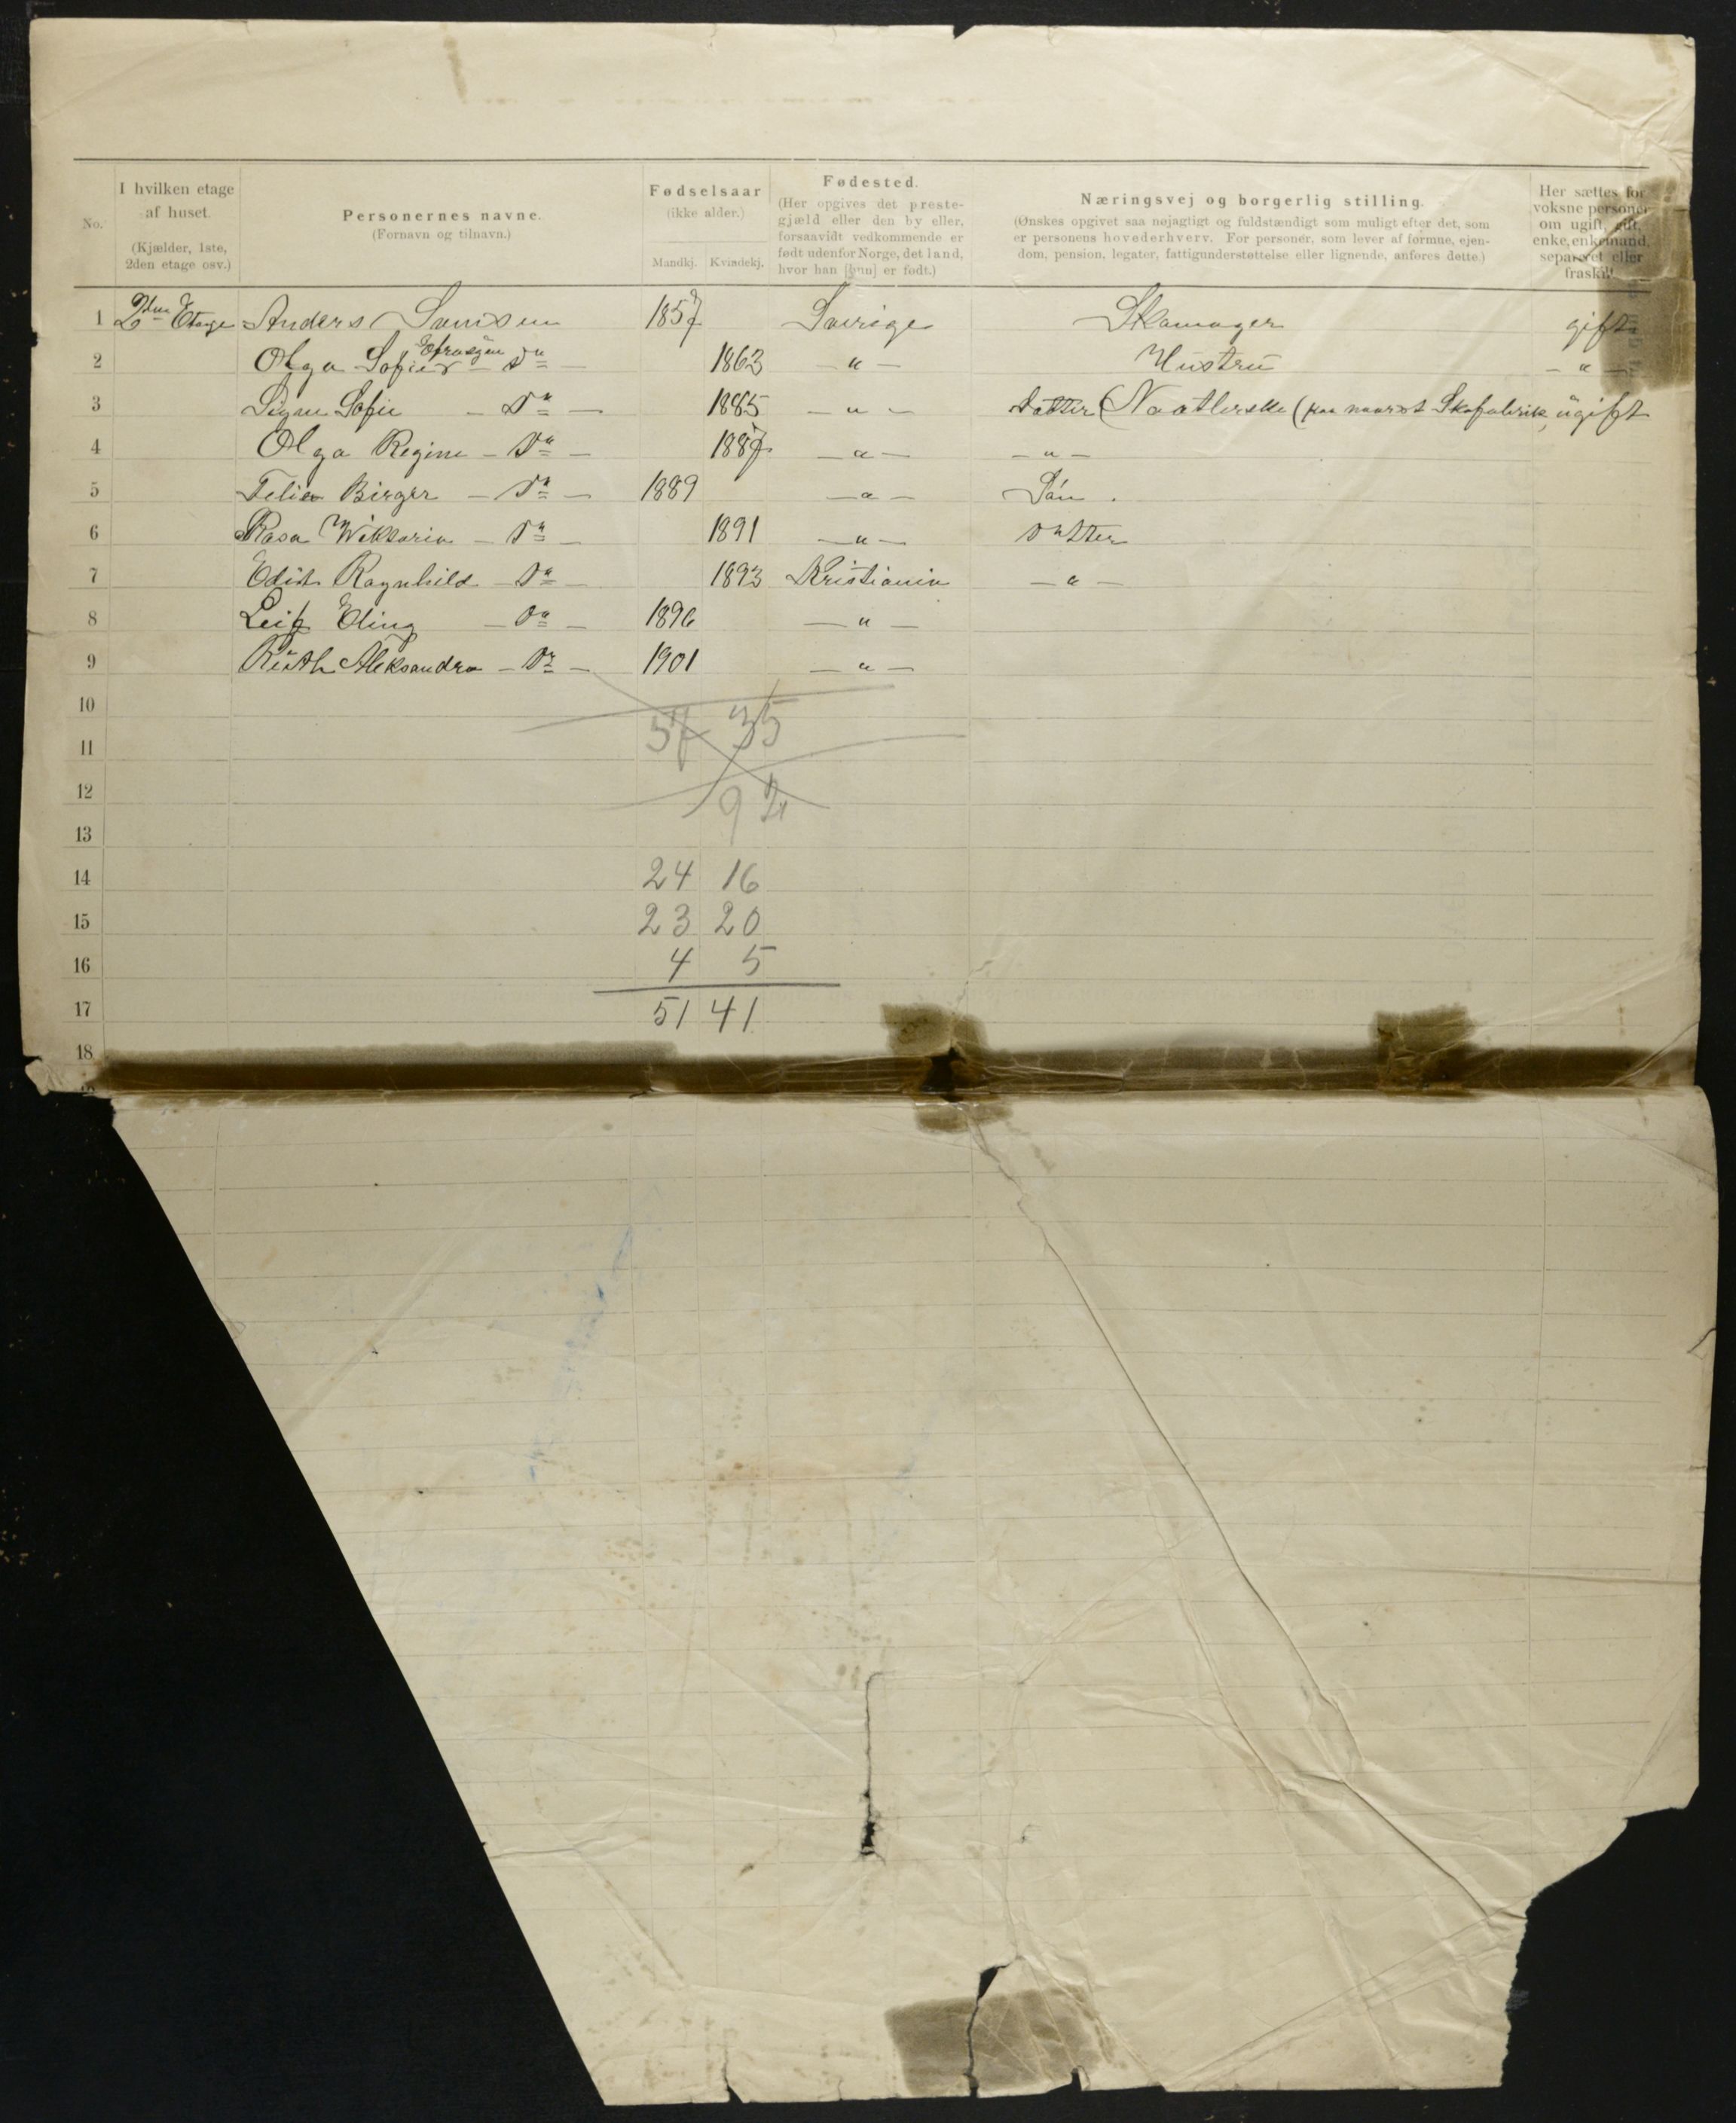 No.
I hvilken etage
af huset.
(Kjælder, 1ste,
2den etage osv.)
Personernes navne.
(Fornavn og tilnavn.)
Fødselsaar
(ikke alder.)
Mandkj. Kvindekj.
Fødested.
(Her opgives det preste-
gjæld eller den by eller,
forsaavidt vedkommende er
født udenfor Norge, det land,
hvor han [hun] er født.)
Næringsvej og borgerlig stilling.
(Ønskes opgivet saa nøjagtigt og fuldstændigt som muligt efter det, som
er personens hovederhverv. For personer, som lever af formue, ejen-
dom, pension, legater, fattigunderstøttelse eller lignende, anføres dette.)
Her sættes for
voksne personer
om ugift, gift,
enke, enkemand,
separeret eller
fraskilt.
1 2den Etage Anders 1857 Sverige Skomager gift
2 Olga Sofie — Do — 1863 — " — Hustru — " —
3 Signe Sofie — Do — 1885 — " — Datter (Naatlerske (paa Skofabrik, ugift
4 Olga Regine — Do — 1887 — " — — " —
5 Birger — Do — 1889 — " — Søn.
6 Rosa Wiktoria — Do — 1891 — " — Datter
7 Edith Ragnhild — Do — 1893 Kristiania — " —
8 Leif Eling — Do — 1896 — " —
9 Ruth Aleksandra — Do — 1901 — " —
10
11 57 35
12 92
13
14 24 16
15 23 20
16 4 5
17 51 41
18